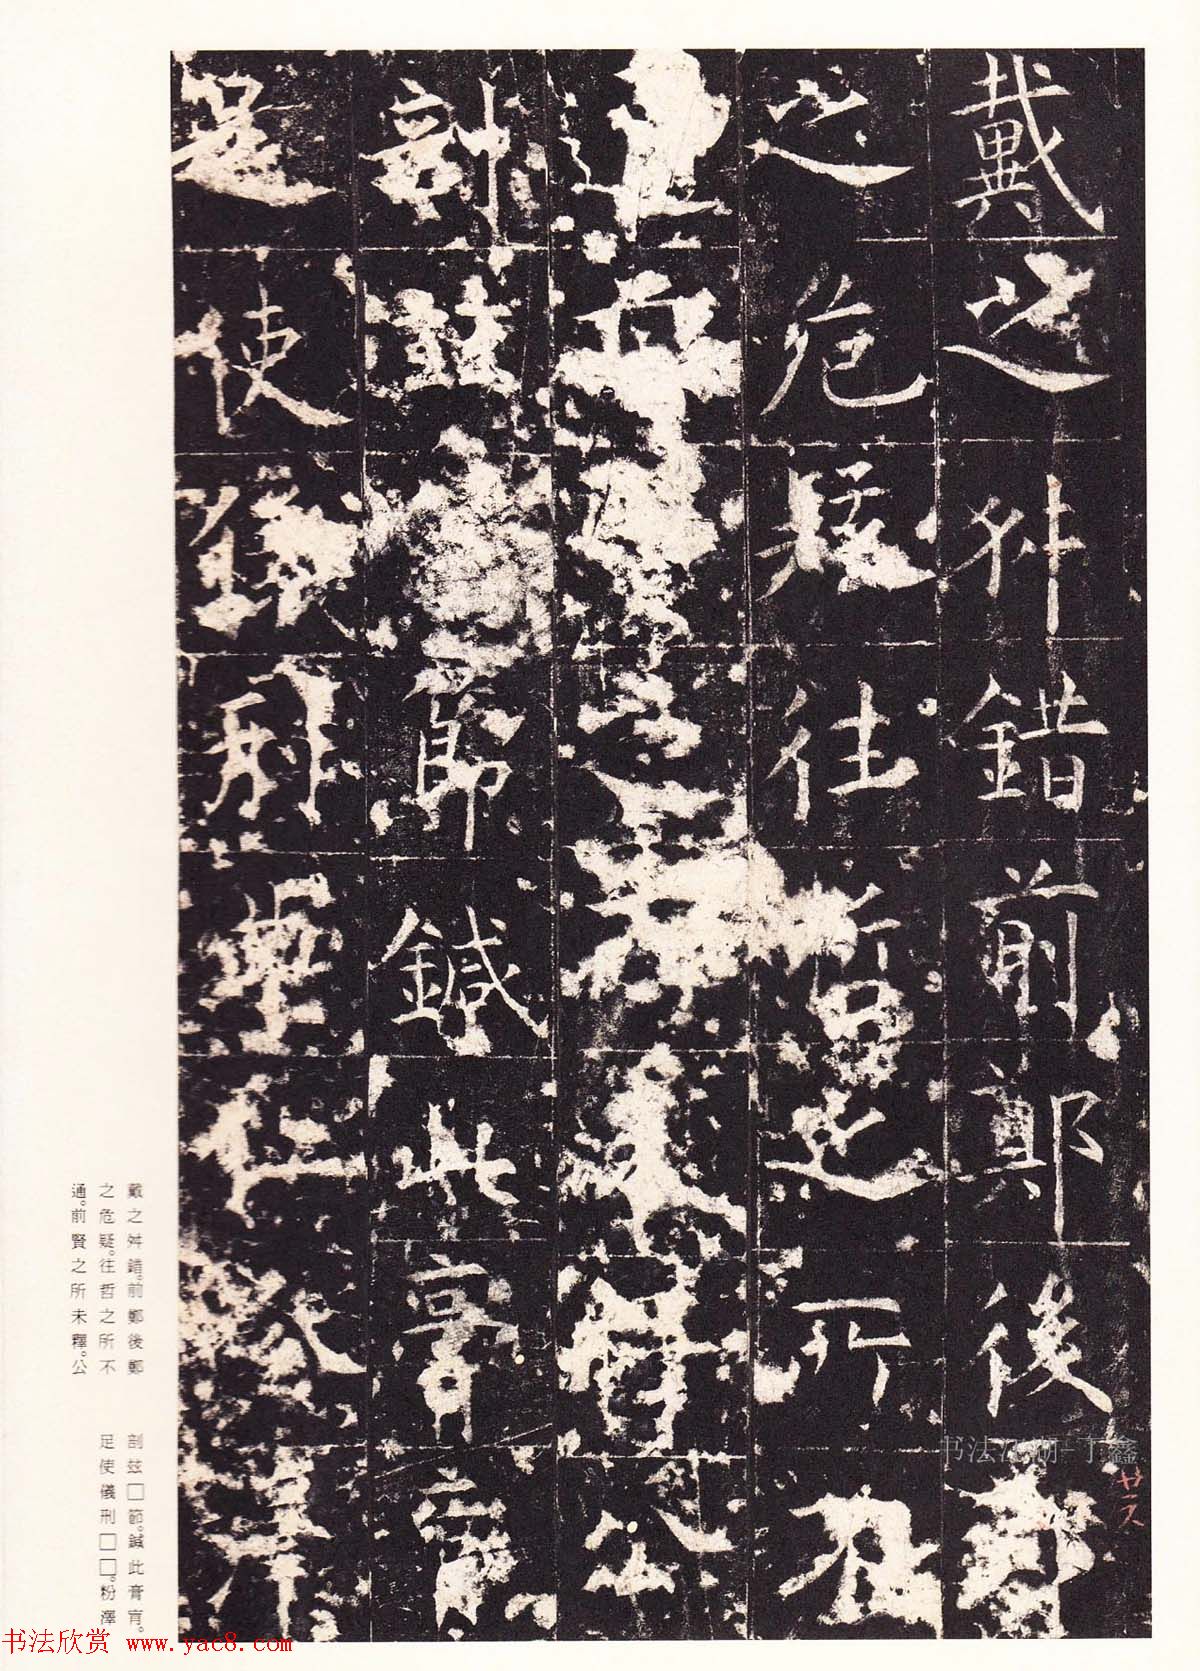 戴之舛錯前鄭後鄭
之危疑往哲之所不
通前賢之所未釋公
剖茲節鍼此膏肓
足使儀刑粉澤
戴之舛錯。前鄭後鄭
之危疑。往哲之所不
通。前賢之所未釋。公
剖玆□節。鍼此膏肓。
足使儀刑□□。粉澤
书法江湖-丁鑫
书法欣赏 www.yac8.com